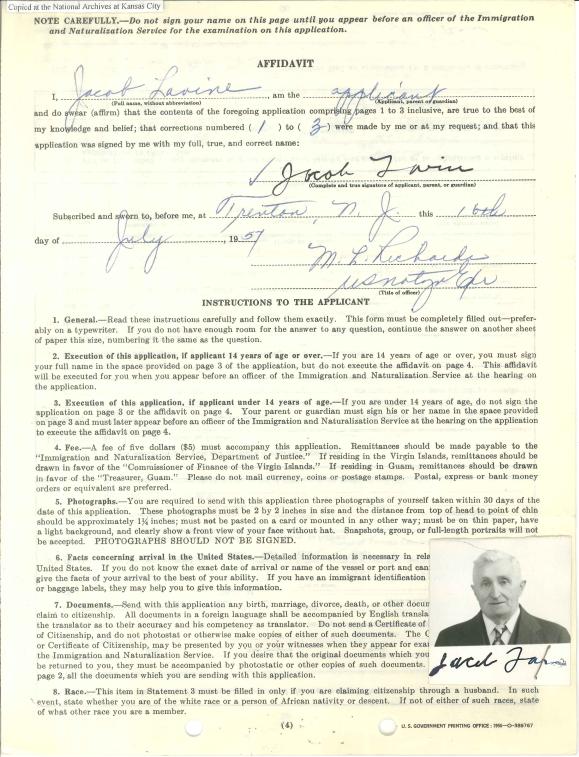 Copied at the National Archives at Kansas City
NOTE CAREFULLY.—Do not sign your name on this page until you appear before an officer of the Immigration
and Naturalization Service for the examination on this application.
AFFIDAVIT
I, Jacob Lavine, am the applicant
(Full name, without abbreviation) (Applicant, parent or guardian)
and do swear (affirm) that the contents of the foregoing application comprising pages 1 to 3 inclusive, are true to the best of
my knowledge and belief; that corrections numbered ( 1 ) to ( 3 ) were made by me or at my request; and that this
application was signed by me with my full, true, and correct name:
Jacob
(Complete and true signature of applicant, parent, or guardian)
Subscribed and sworn to, before me, at Trenton, N. J. this 16th
day of July, 1957
M. L. Richards
(Title of officer)
INSTRUCTIONS TO THE APPLICANT
1. General.—Read these instructions carefully and follow them exactly. This form must be completely filled out—prefer-
ably on a typewriter. If you do not have enough room for the answer to any question, continue the answer on another sheet
of paper this size, numbering it the same as the question.
2. Execution of this application, if applicant 14 years of age or over.—If you are 14 years of age or over, you must sign
your full name in the space provided on page 3 of the application, but do not execute the affidavit on page 4. This affidavit
will be executed for you when you appear before an officer of the Immigration and Naturalization Service at the hearing on
the application.
3. Execution of this application, if applicant under 14 years of age.—If you are under 14 years of age, do not sign the
application on page 3 or the affidavit on page 4. Your parent or guardian must sign his or her name in the space provided
on page 3 and must later appear before an officer of the Immigration and Naturalization Service at the hearing on the application
to execute the affidavit on page 4.
4. Fee.—A fee of five dollars ($5) must accompany this application. Remittances should be made payable to the
"Immigration and Naturalization Service, Department of Justice." If residing in the Virgin Islands, remittances should be
drawn in favor of the "Commissioner of Finance of the Virgin Islands." If residing in Guam, remittances should be drawn
in favor of the "Treasurer, Guam." Please do not mail currency, coins or postage stamps. Postal, express or bank money
orders or equivalent are preferred.
5. Photographs.—You are required to send with this application three photographs of yourself taken within 30 days of the
date of this application. These photographs must be 2 by 2 inches in size and the distance from top of head to point of chin
should be approximately 1¼ inches; must not be pasted on a card or mounted in any other way; must be on thin paper, have
a light background, and clearly show a front view of your face without hat. Snapshots, group, or full-length portraits will not
be accepted. PHOTOGRAPHS SHOULD NOT BE SIGNED.
6. Facts concerning arrival in the United States.—Detailed information is necessary in rela
United States. If you do not know the exact date of arrival or name of the vessel or port and can
give the facts of your arrival to the best of your ability. If you have an immigrant identification
or baggage labels, they may help you to give this information.
7. Documents.—Send with this application any birth, marriage, divorce, death, or other docum
claim to citizenship. All documents in a foreign language shall be accompanied by English transla
the translator as to their accuracy and his competence as translator. Do not send a Certificate of
of Citizenship, and do not photostat or otherwise make copies of either of such documents. The C
or Certificate of Citizenship, may be presented by you or your witnesses when they appear for exa
the Immigration and Naturalization Service. If you desire that the original documents which you
be returned to you, they must be accompanied by photostatic or other copies of such documents.
page 2, all the documents which you are sending with this application.
8. Race.—This item in Statement 3 must be filled in only if you are claiming citizenship through a husband. In such
event, state whether you are of the white race or a person of African nativity or descent. If not of either of such races, state
of what other race you are a member.
(4) U. S. GOVERNMENT PRINTING OFFICE : 1956—O-386767